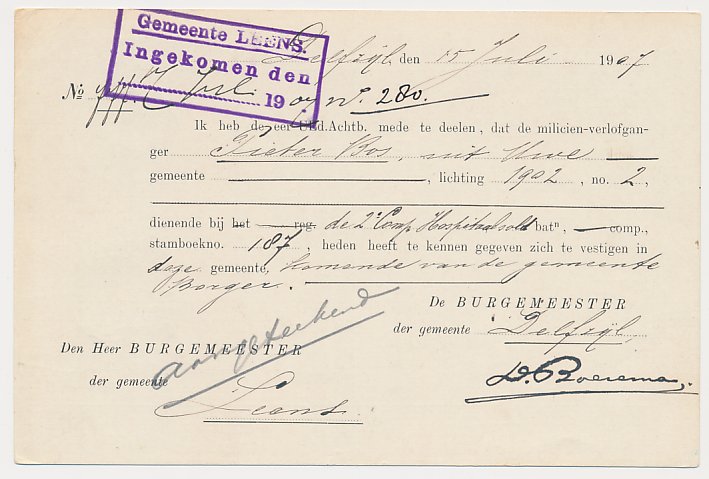 Gemeente LEENS.
Ingekomen den
17 Juli 1907
Delfzijl, den 15 Juli 1907
No. n°. 280.
Ik heb de eer UEd.Achtb. mede te deelen, dat de milicien-verlofgan-
ger Pieter Bos, uit Uwe
gemeente , lichting 1902, no. 2,
dienende bij het reg. de 2e Comp Hospitaalsold batn, comp.,
stamboekno. 187, heden heeft te kennen gegeven zich te vestigen in
deze gemeente, komende van de gemeente
Borger.
De BURGEMEESTER
der gemeente Delfzijl
Den Heer BURGEMEESTER
aangeteekend
der gemeente
Leens.
D. Boerema